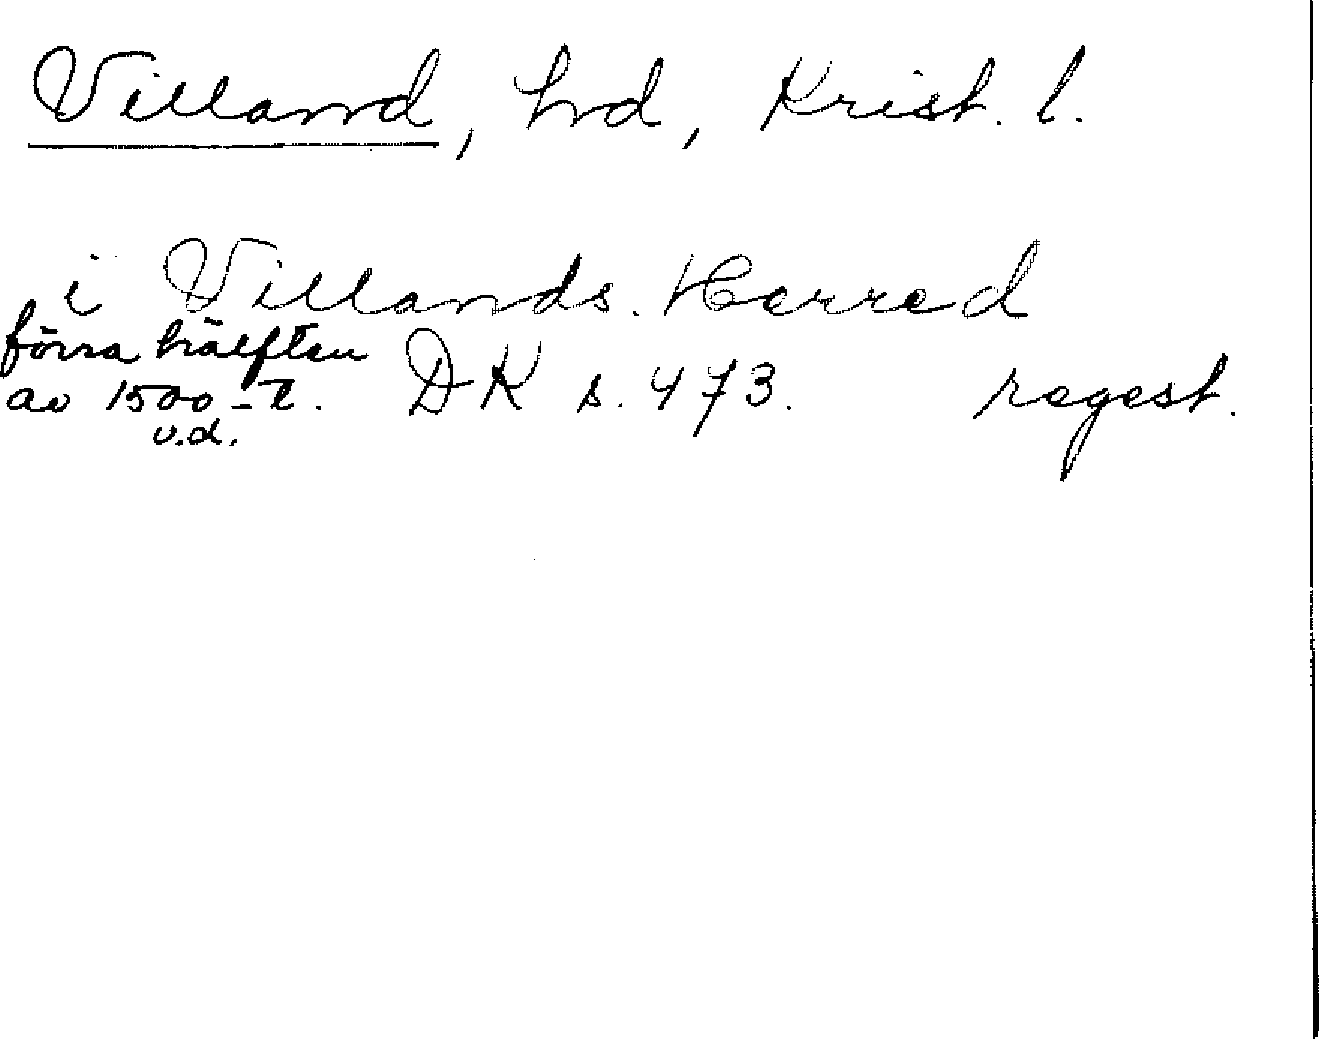 Villand, hd, Krist. l.
i Villands. Herred
förra hälften
av 1500-t. DK s. 473. regest.
u.d.